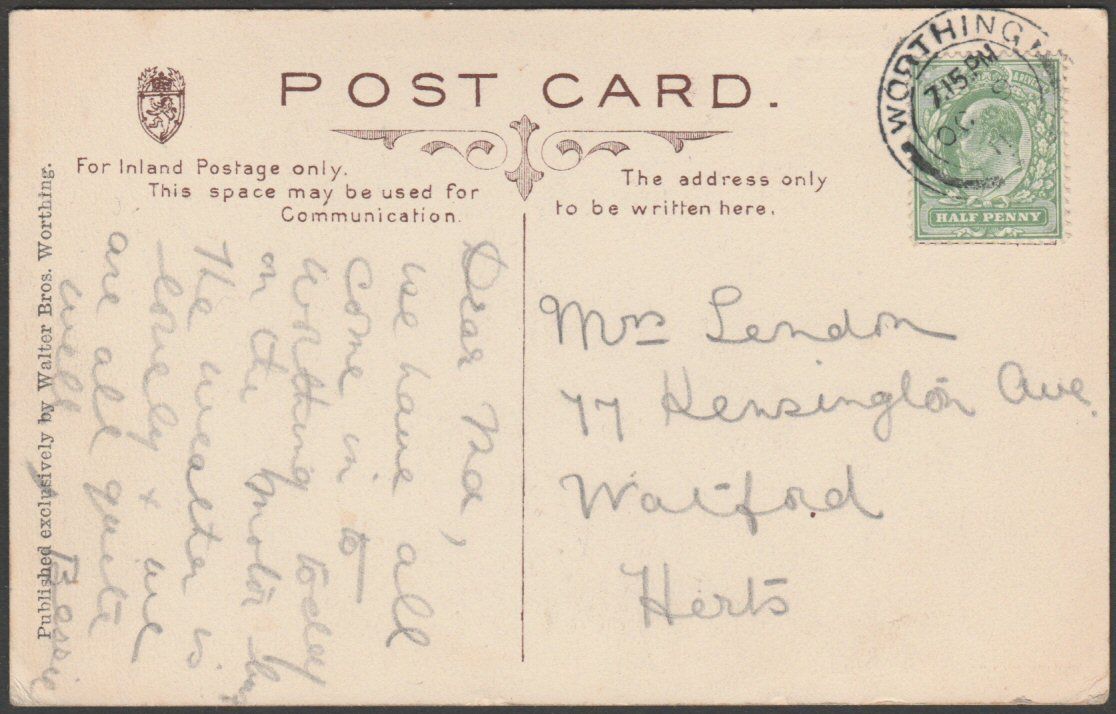 POST CARD.
For Inland Postage only.
This space may be used for
Communication.
The address only
to be written here.
WORTHING
7.15 PM
OC
HALF PENNY
Published exclusively by Walter Bros. Worthing.
Dear Ma,
we have all
come in to
Worthing today
on the motor bus
The weather is
lovely & we
are all quite
well
Bessie
Mrs Lendon
77 Kensington Ave.
Watford
Herts